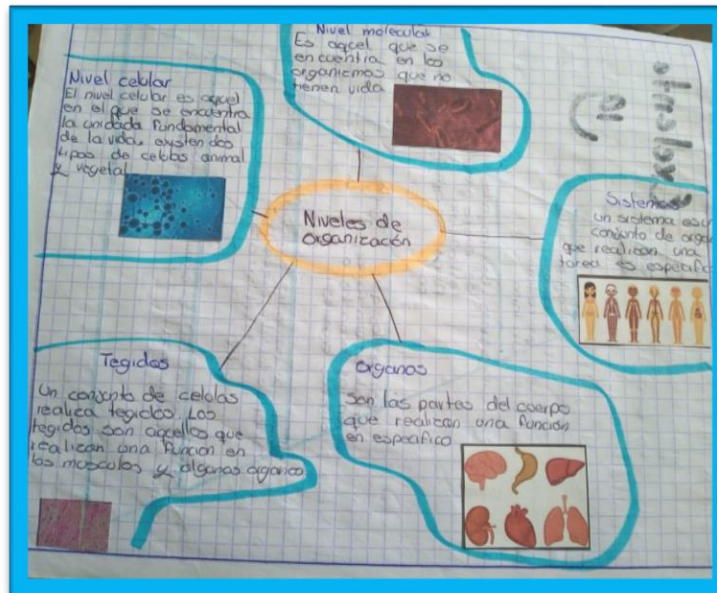 Nivel molecular
Es aqcel que se
encuentra en los
organicmos que no
tienen vida
Nivel celular
El nivel celular es aqcel
en el que se encuentra
la unidada fundamental
de la vida, existen dos
tipos de celulas animal
y vegetal
Niveles de
organización
Sistemas
un sistema es un
conjunto de organ
que realizan una
tarea es especifica
Tegidos
Un conjunto de celulas
realiza tegidos. Los
tegidos son aqcellos que
realizan una funcion en
los musculos y algunas organos
organos
Son las partes del cuerpo
que realizan una función
en especifico